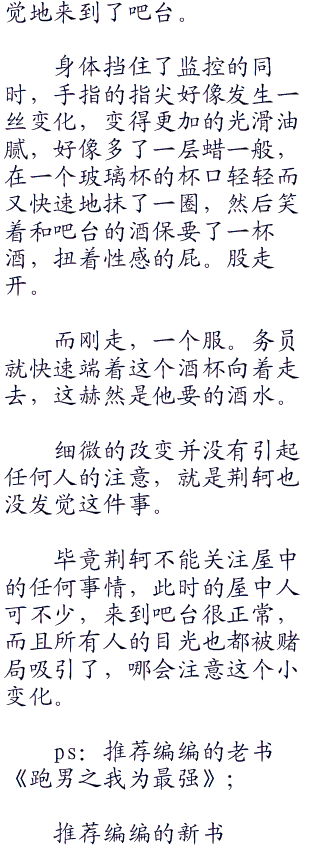 觉地来到了吧台。
身体挡住了监控的同
时，手指的指尖好像发生一
丝变化，变得更加的光滑油
腻，好像多了一层蜡一般，
在一个玻璃杯的杯口轻轻而
又快速地抹了一圈，然后笑
着和吧台的酒保要了一杯
酒，扭着性感的屁。股走
开。
而刚走，一个服。务员
就快速端着这个酒杯向着走
去，这赫然是他要的酒水。
细微的改变并没有引起
任何人的注意，就是荆轲也
没发觉这件事。
毕竟荆轲不能关注屋中
的任何事情，此时的屋中人
可不少，来到吧台很正常，
而且所有人的目光也都被赌
局吸引了，哪会注意这个小
变化。
ps：推荐编编的老书
《跑男之我为最强》；
推荐编编的新书